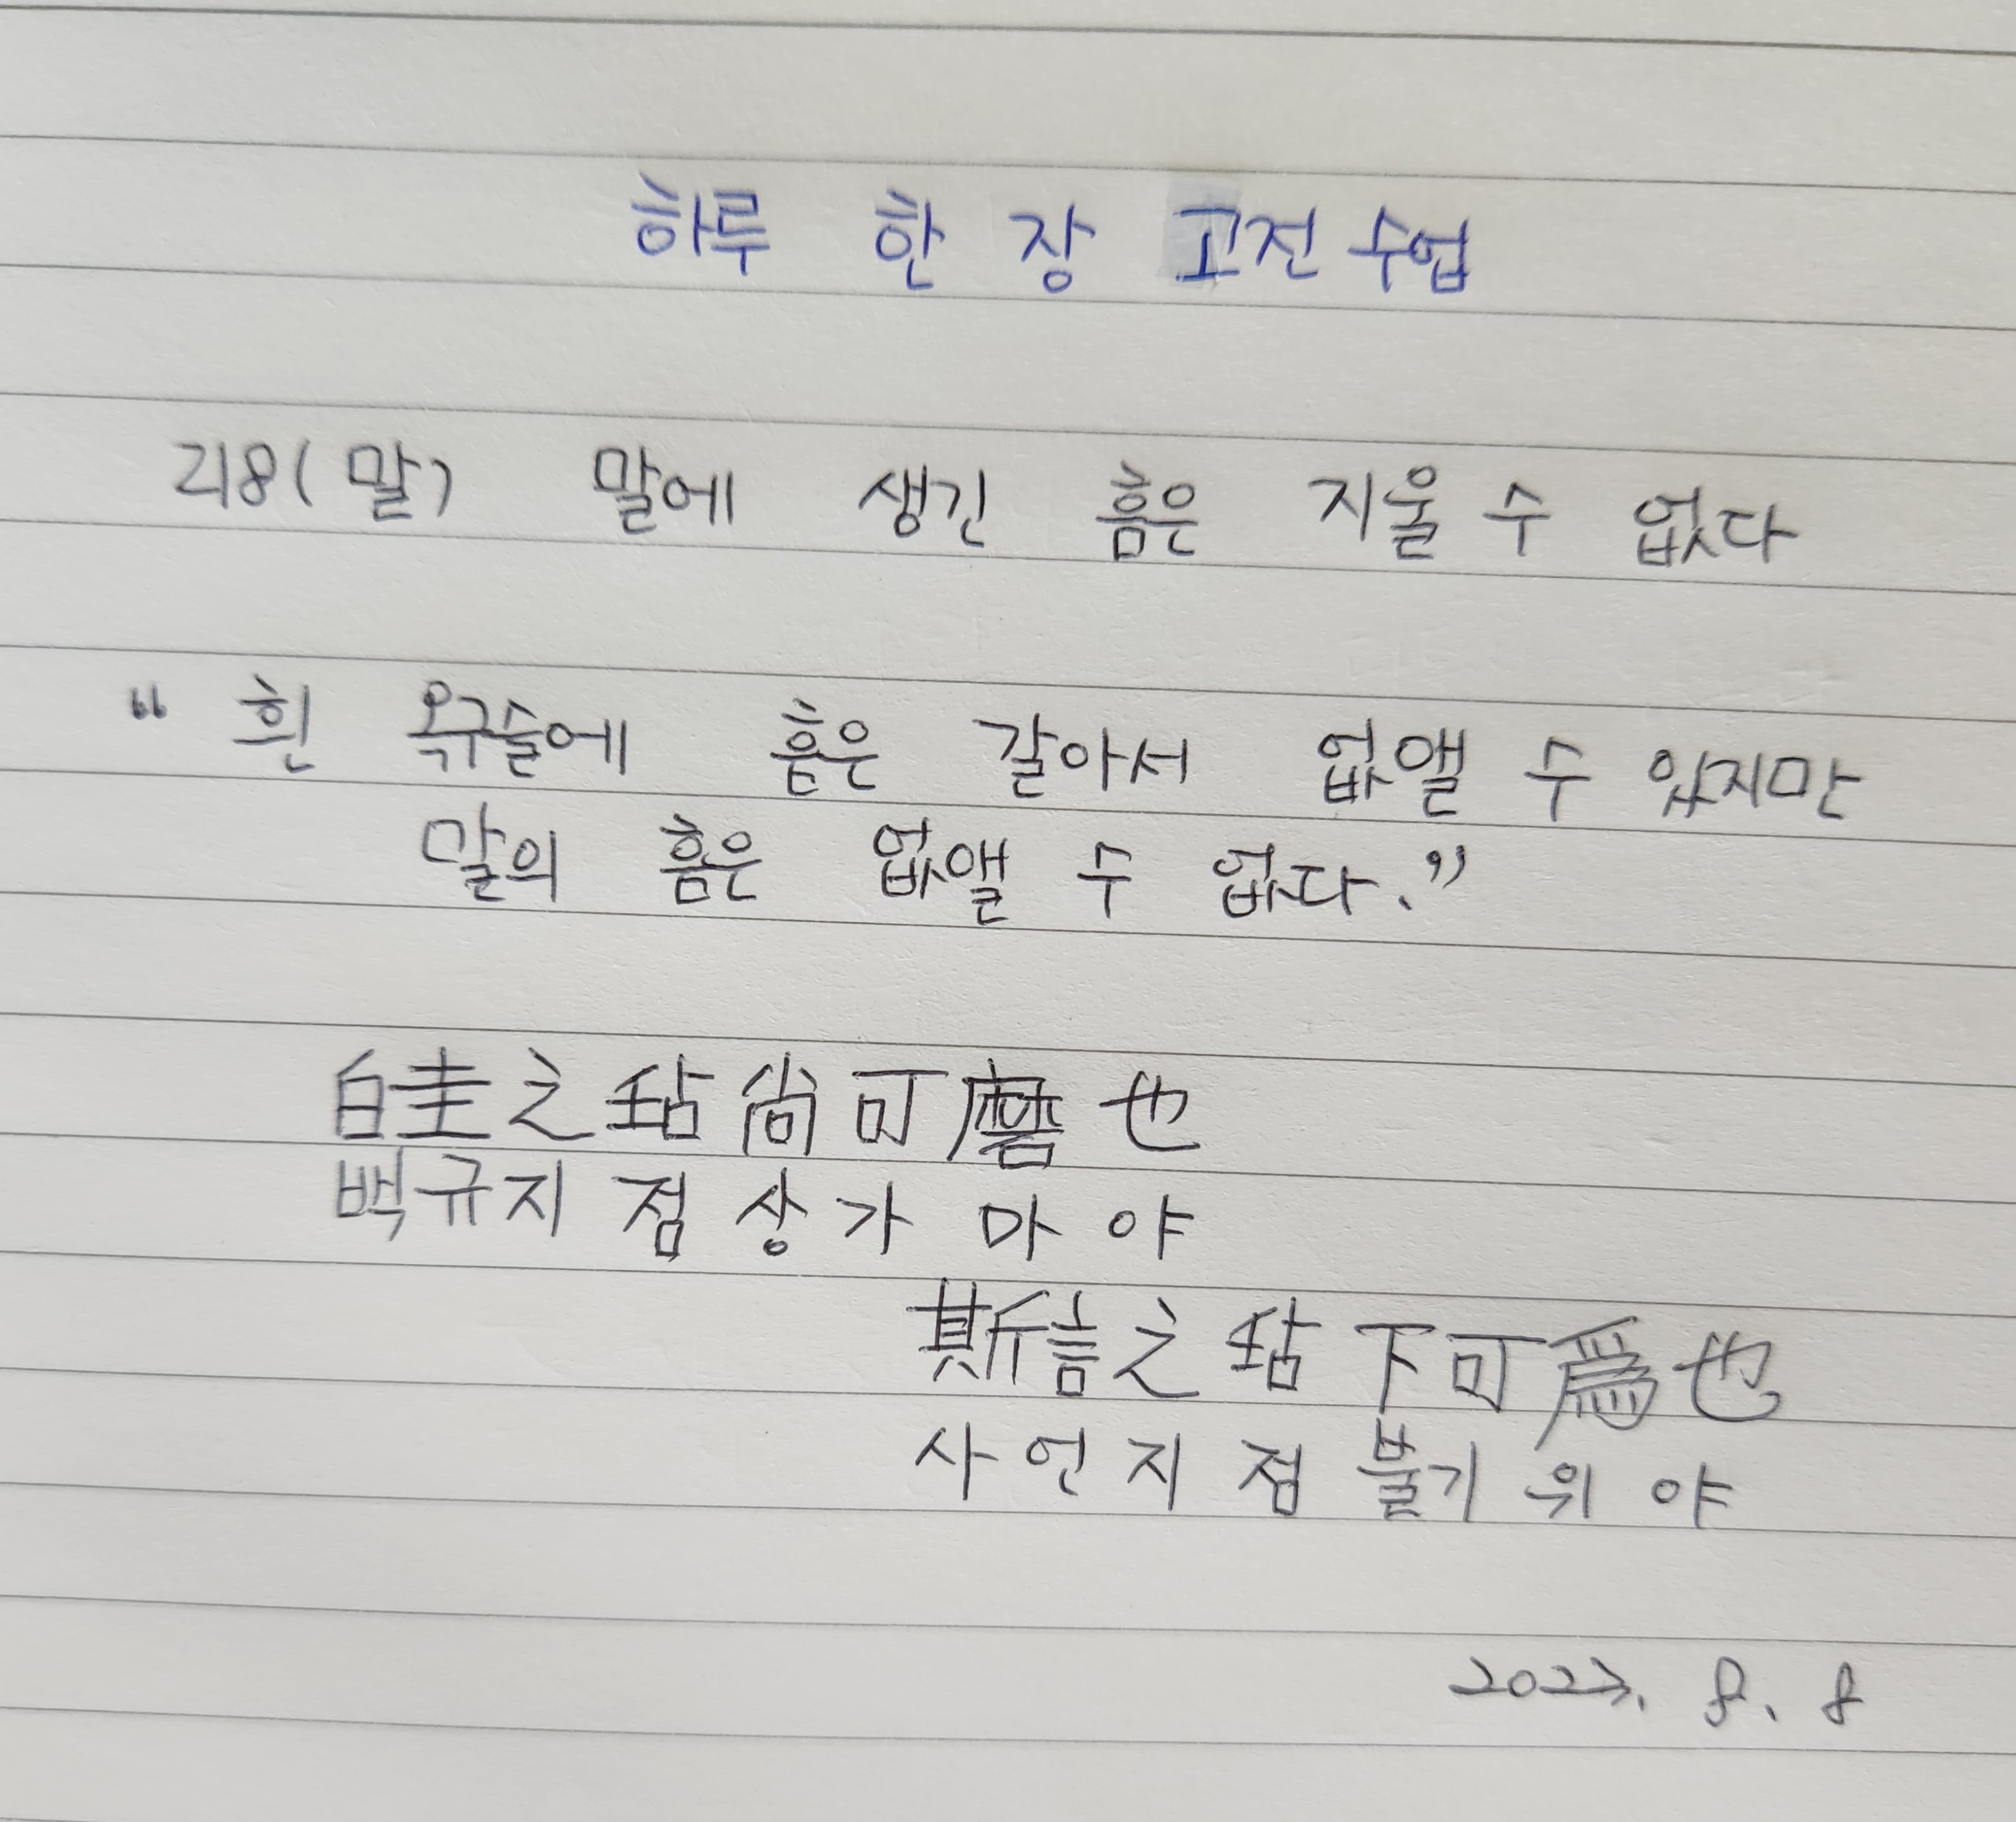 하루 한 장 고전 수업
218(말) 말에 생긴 흠은 지울 수 없다
“ 흰 옥구슬에 흠은 갈아서 없앨 수 있지만
말의 흠은 없앨 수 없다.”
白圭之玷尙可磨也
백규지점상가마야
斯言之玷下可爲也
사언지점불가위야
2023. 8. 8